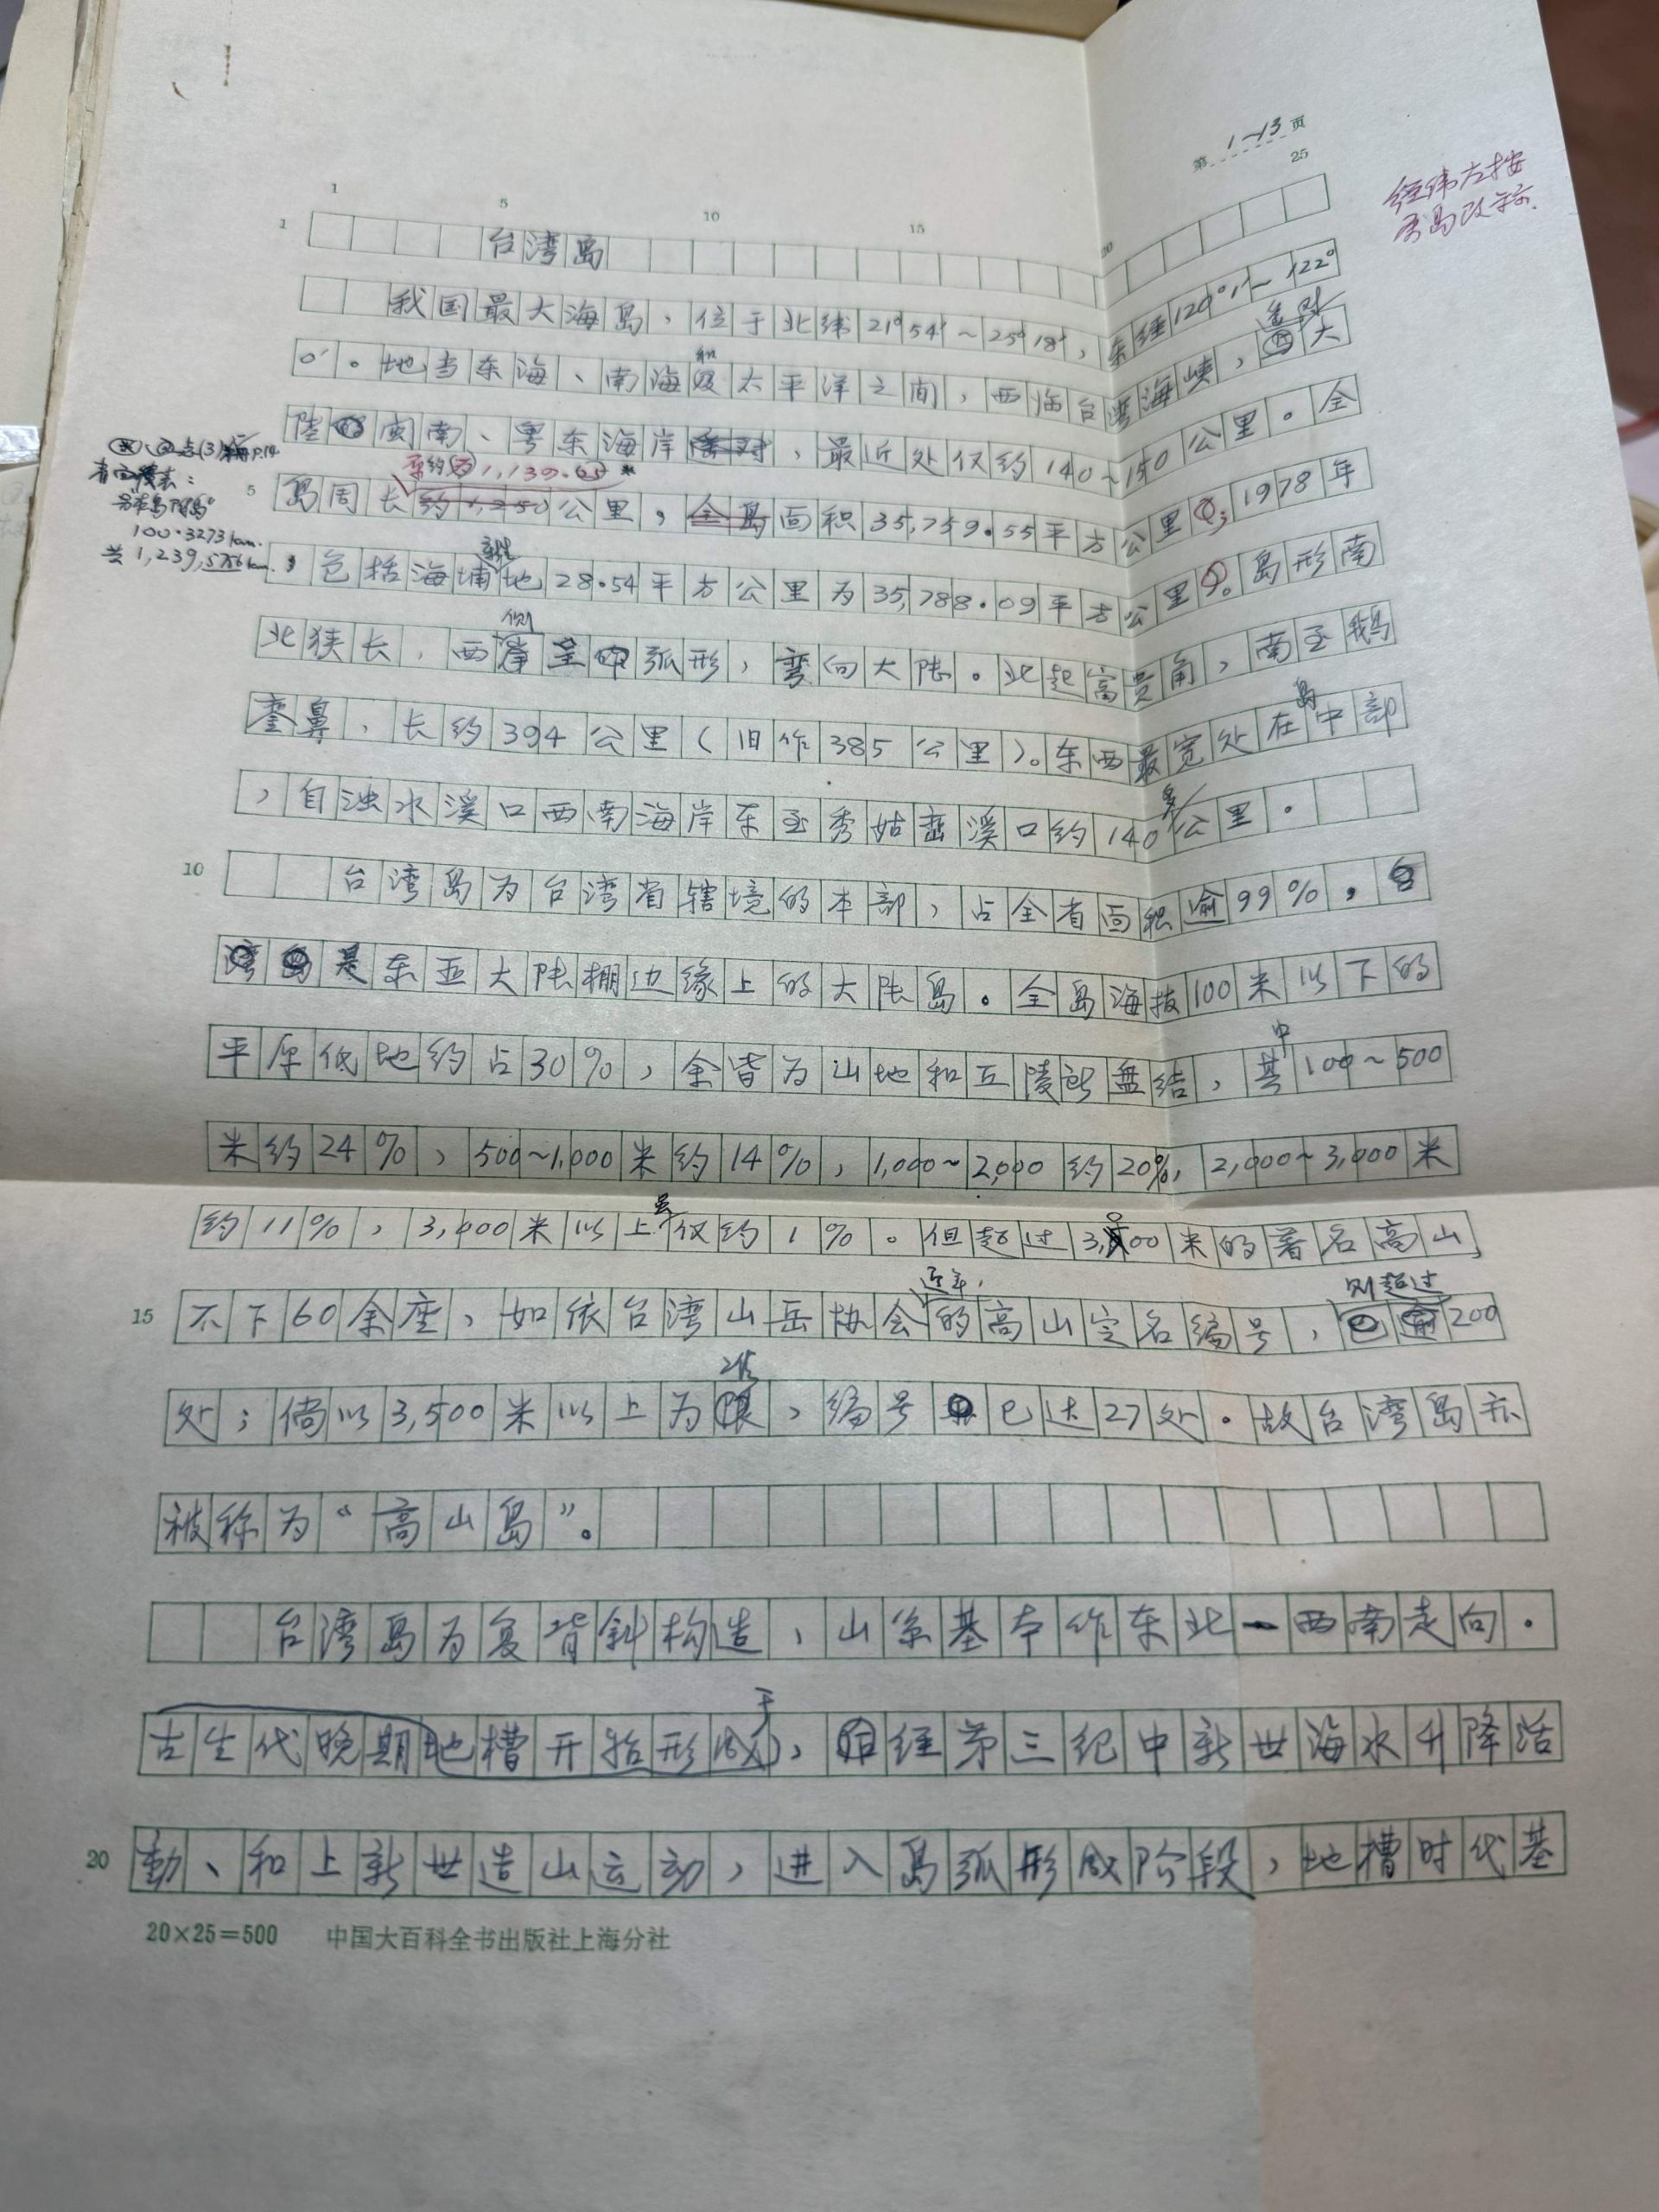 第1~13页
1 5 10 15 20 25
经纬度按
本岛改稿.
1 台湾岛
我国最大海岛，位于北纬21°54′~25°18′，东经120°1′~122°
0′。地当东海、南海和太平洋之间，西临台湾海峡，遥对大
陆闽南、粤东海岸，最近处仅约140~150公里。全
5 岛周长约1,139.65*公里，面积35,759.55平方公里；1978年
，包括海埔新生地28.54平方公里为35,788.09平方公里。岛形南
北狭长，西侧呈弧形，弯向大陆。北起富贵角，南至鹅
銮鼻，长约394公里(旧作385公里)。东西最宽处在岛中部
，自浊水溪口西南海岸东至秀姑峦溪口约140多公里。
10 台湾岛为台湾省辖境的本部，占全省面积逾99%，
是东亚大陆棚边缘上的大陆岛。全岛海拔100米以下的
平原低地约占30%，余皆为山地和丘陵所盘结，其中100~500
米约24%，500~1,000米约14%，1,000~2,000约20%，2,000~3,000米
约11%，3,000米以上虽仅约1%。但超过3,000米的著名高山
15 不下60余座，如依台湾山岳协会近年的高山定名编号，则超过200
处；倘以3,500米以上为准，编号已达27处。故台湾岛亦
被称为“高山岛”。
台湾岛为复背斜构造，山系基本作东北—西南走向。
地槽开始形成于古生代晚期，经第三纪中新世海水升降活
20 動、和上新世造山运动，进入岛弧形成阶段，地槽时代基
100.3273km.
共1,239,5756km.
20×25=500 中国大百科全书出版社上海分社